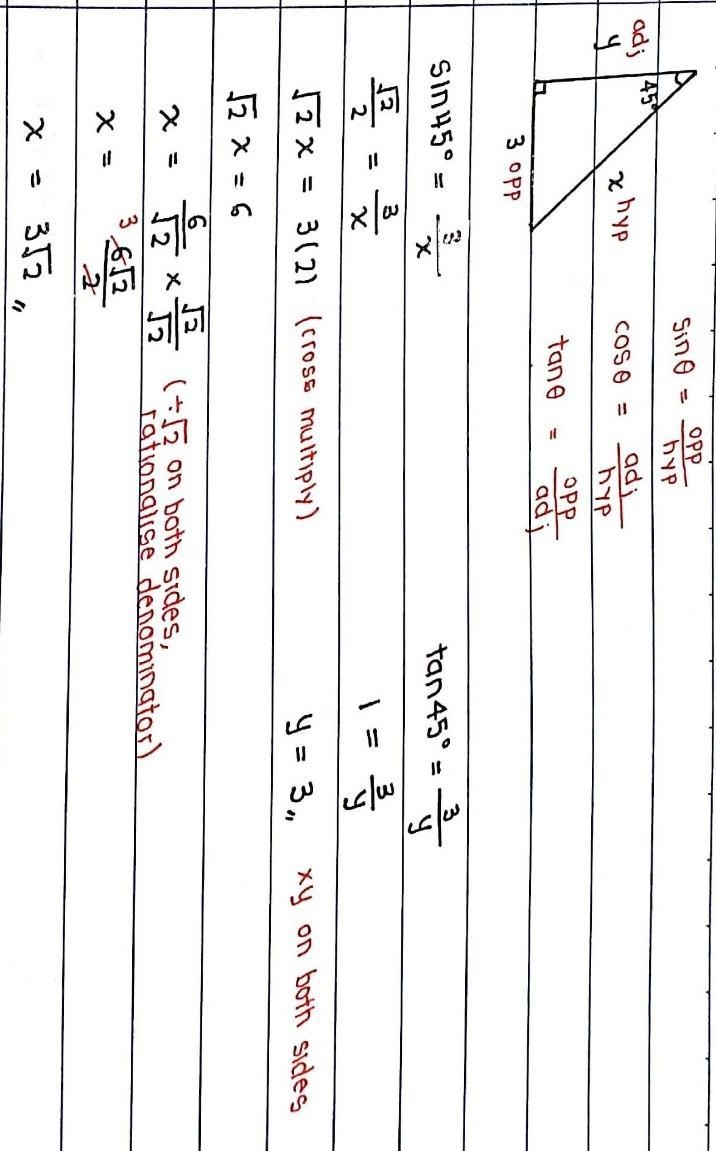 adj
y
45°
x hyp
3 opp
sinθ = opp/hyp
cosθ = adj/hyp
tanθ = opp/adj
sin45° = 3/x
√2/2 = 3/x
√2 x = 3(2) (cross multiply)
√2 x = 6
x = 6/√2 × √2/√2 (÷√2 on both sides,
rationalise denominator)
x = 3 6√2/2
x = 3√2 〃
tan45° = 3/y
1 = 3/y
y = 3 〃 xy on both sides